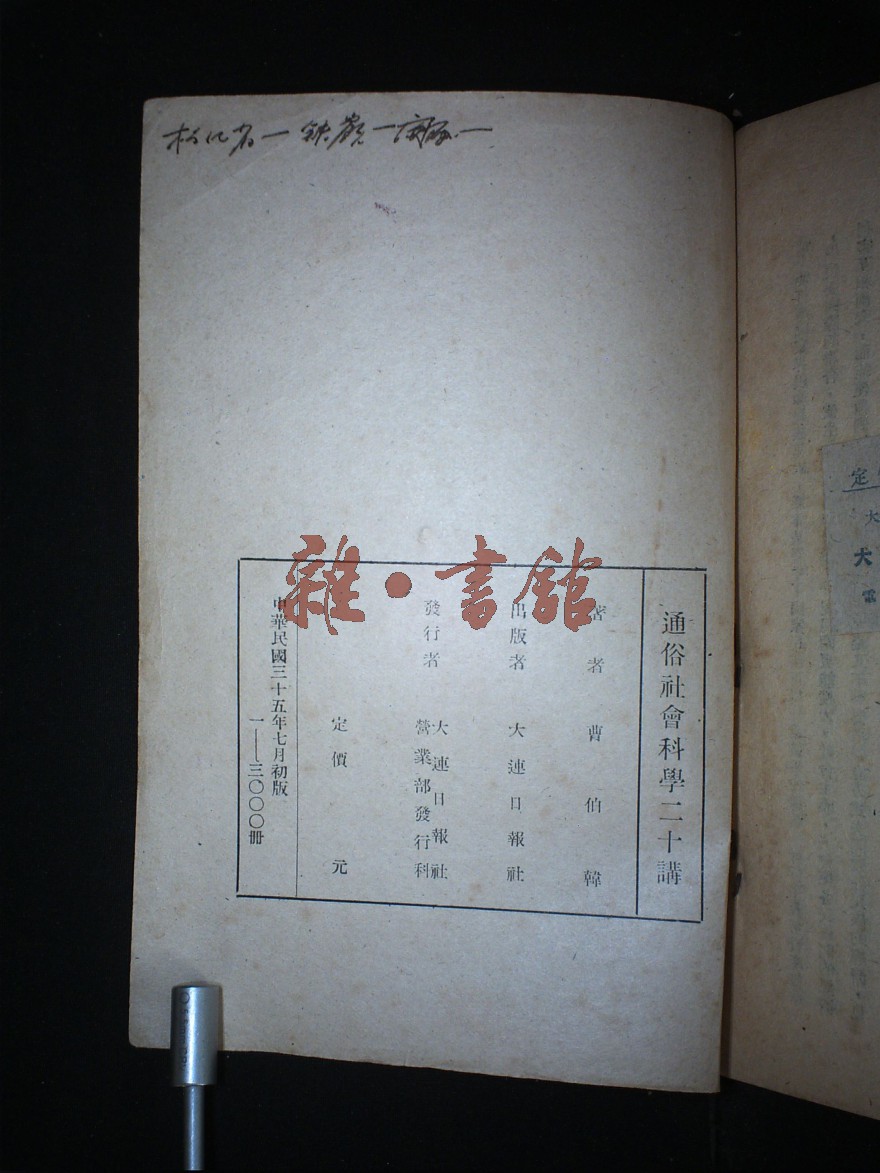 通俗社會科學二十講
著者 曹伯韓
出版者 大連日報社
發行者 大連日報社
營業部發行科
定價 元
中華民國三十五年七月初版
一——三〇〇〇冊
雜·書舘
定
大
大
電